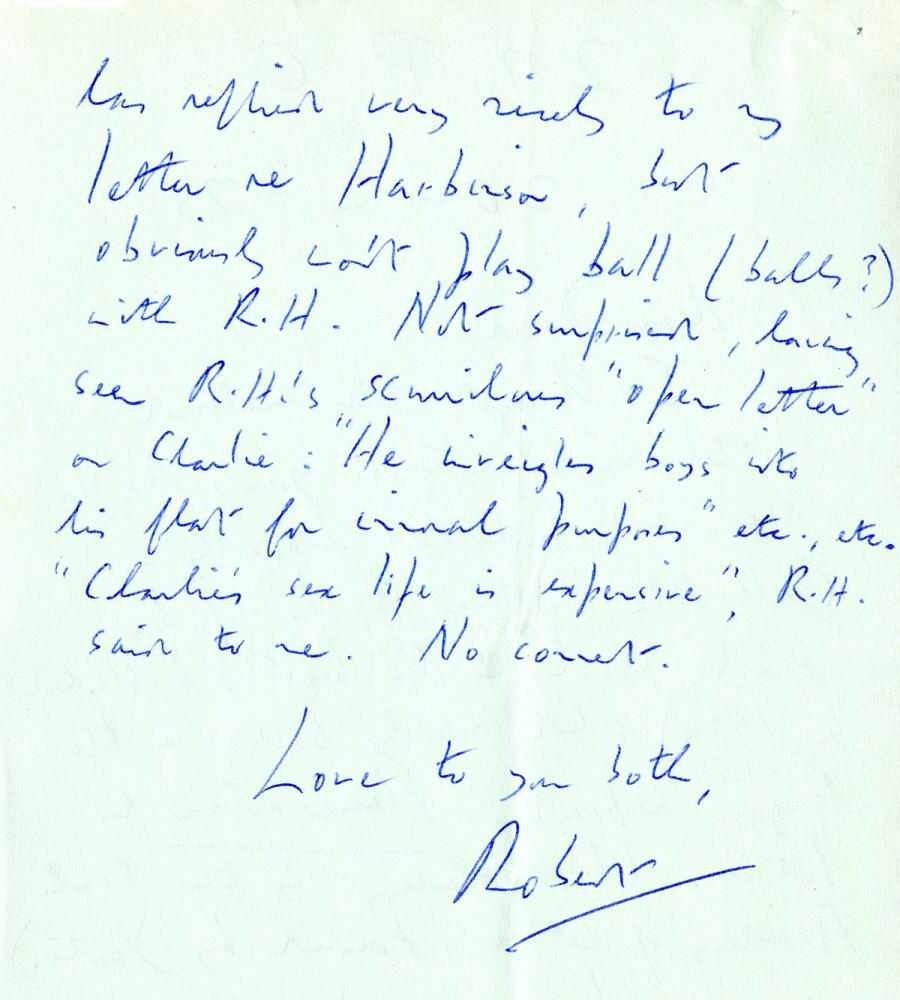 has replied very nicely to my
letter re Harbinson, but
obviously won't play ball (balls?)
with R.H. Not surprised, having
seen R.H.'s scurrilous "open letter"
on Charlie: "He inveigles boys into
his flat for immoral purposes" etc., etc.
"Charlie's sex life is expensive", R.H.
said to me. No comment.
Love to you both,
Robert